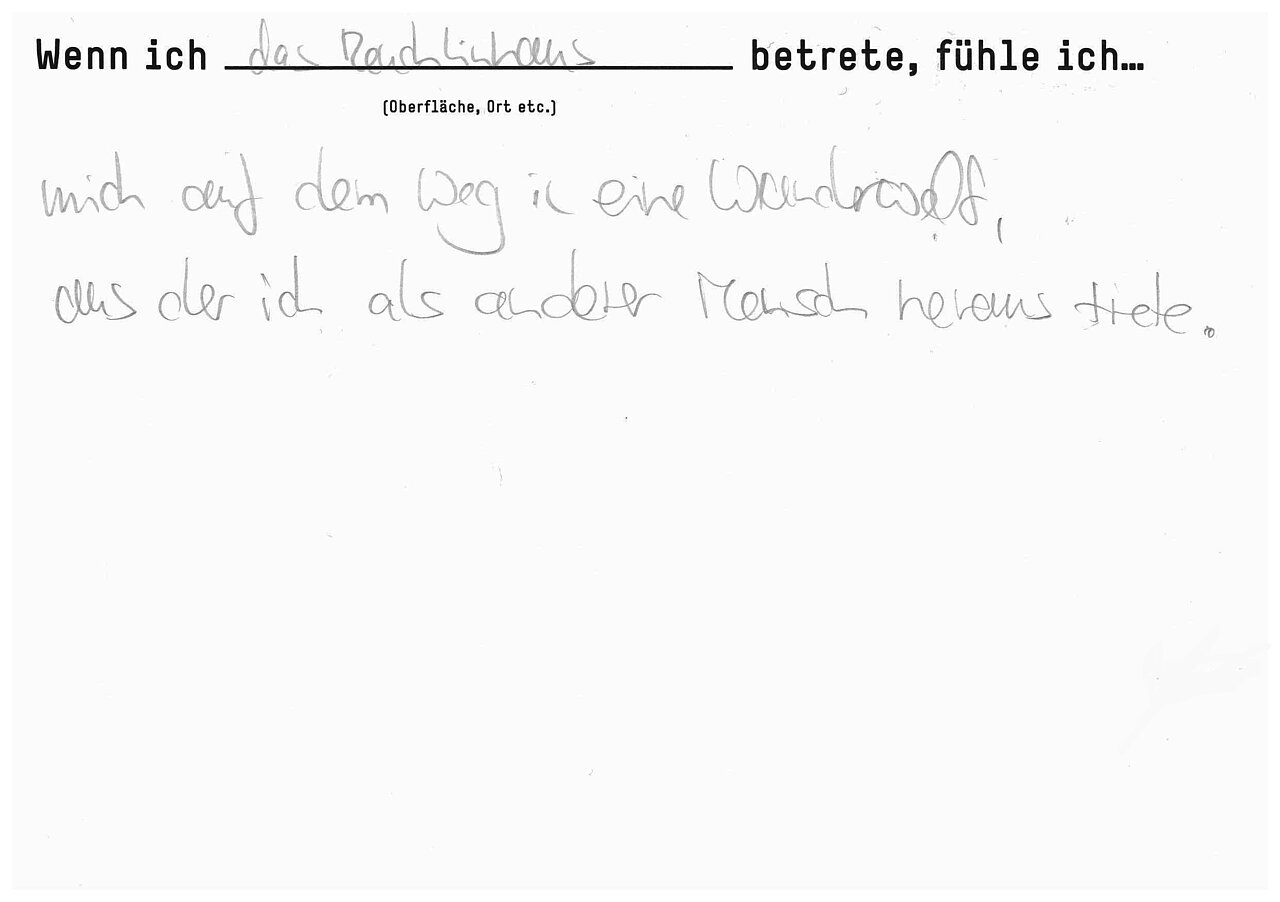 Wenn ich das Reuchlinhaus betrete, fühle ich...
(Oberfläche, Ort etc.)
mich auf dem Weg in eine Wunderwelt,
aus der ich als anderer Mensch heraus trete.